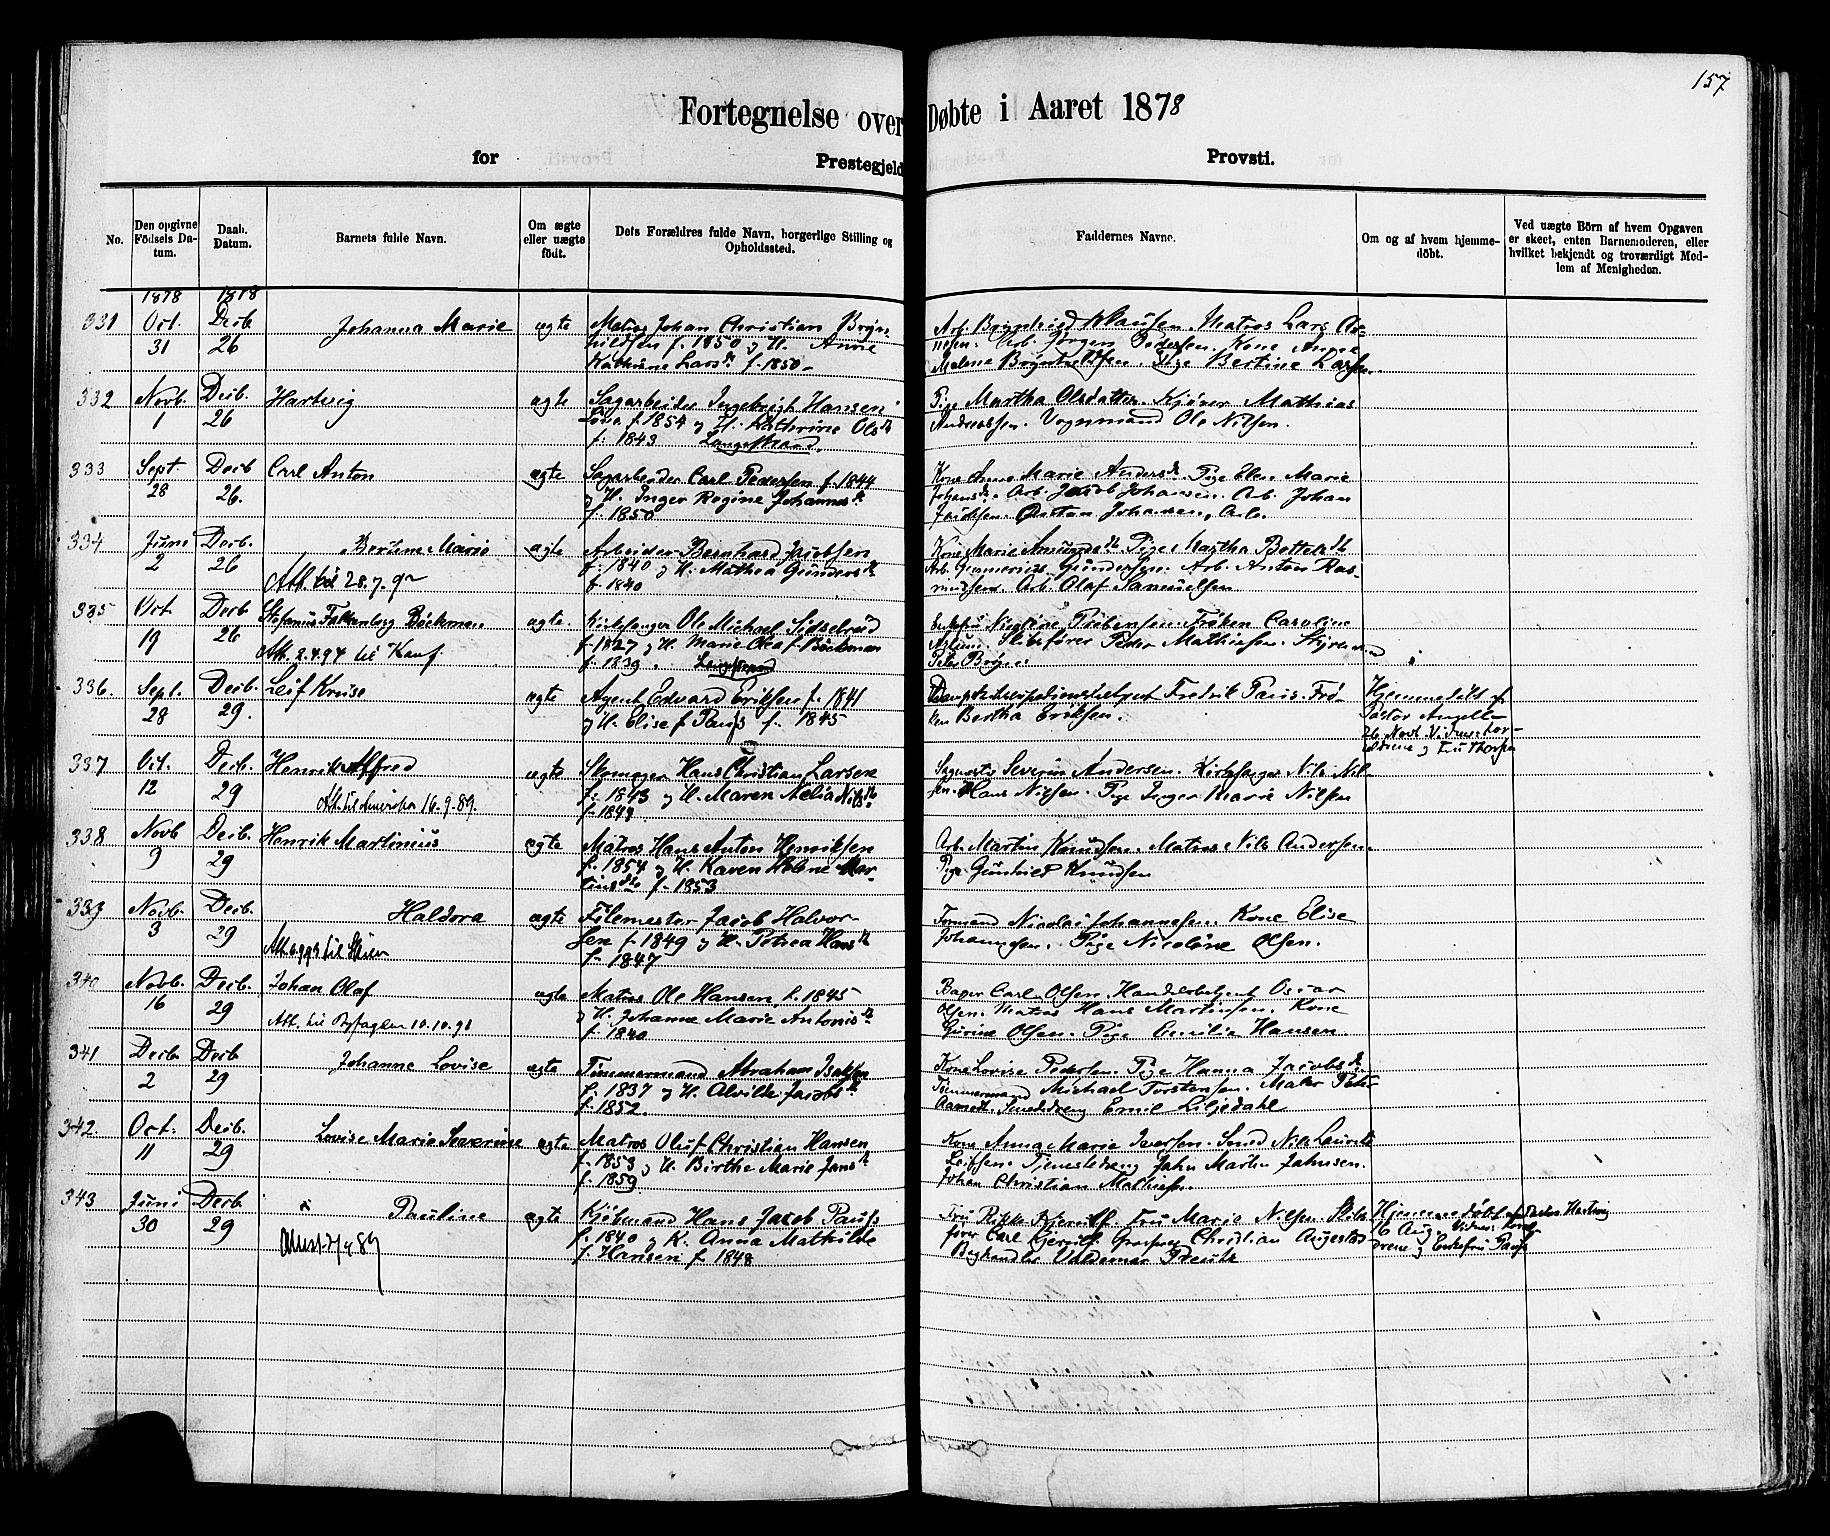 157
Fortegnelse over Døbte i Aaret 1878
for Prestegjeld Provsti.
No.
Den opgivne Fødsels Datum.
Daab. Datum.
Barnets fulde Navn.
Om ægte eller uægte födt.
Dets Forældres fulde Navn, borgerlige Stilling og Opholdssted.
Faddernes Navne.
Om og af hvem hjemmedöbt.
Ved uægte Börn af hvem Opgaven er skeet, enten Barnemoderen, eller hvilket bekjendt og troværdigt Medlem af Menigheden.
1878 1878
331 Oct. Decb. Johanna Marie ægte Matros Johan Christian Bryn-
31 26 hildsen f. 1850 og H. Anne
Kathrine Larsd. f. 1850
Arb. Brynhild Klausen. Matros Lars
Arb. Jørgen Pedersen. Kone Anne
Malene Brynhildsen. Pige Bertine Larsen
332 Novb. Decb. Hartvig ægte Sagarbeider Ingebrigt Hansen
1 26 f. 1854 og H. Kathrine Olsd.
f. 1843 Langestrand
Pige Martha Olsdatter. Kjører Mathias
Andreassen. Vognmand Ole Nilsen.
333 Sept. Decb. Carl Anton ægte Sagarbeider Carl Pedersen f. 1844
28 26. og H. Inger Regine Johannesd.
f. 1850
Kone Anne Marie Andersd. Pige Elen Marie
Johansd. Arb. Jacob Johansen. Arb. Johan
Johansen, Arb.
334 Juni Decb. Bertine Marie ægte Arbeider Bernhard Jacobsen
2 26 f. 1840 og H. Mathea Gundersd.
Att. 28.7.92 f. 1840
Kone Marie Amundsd. Pige Martha
Arb. Gundersen. Arb. Anton Ras-
mussen. Arb. Olaf Samuelsen
335 Oct. Decb. Stefanus Falkenberg Böckman ægte Kirkesanger Ole Michael Sidselrud
19 26 f. 1827 og H. Marie Olea f. Böckman
Att. 2.4.94 til Konf. f. 1839. Langestrand
Nicoline Pedersen. Frøken Caroline
Skibsfører Peder Mathisen. Styrmand
Peter Bryn
336. Sept. Decb. Leif Kruse ægte Agent Edvard Eriksen f. 1841
28 29. og H. Elise f. Paus f. 1845
Fredrik Paus. Frø-
ken Bertha Eriksen.
Hjemmedöbt af
Pastor Angell
26 Novb. Vidner: For-
ældrene og Fru Thorsen
337 Oct. Decb. Henrik Alfred ægte Skomager Hans Christian Larsen
12 29 f. 1843 og H. Maren Nilsd.
Att. til Amerika 16.9.89. f. 1843
Severin Andersen. Kirkesanger Nils Nil-
sen. Hans Nielsen. Pige Inger Marie Nilsen
338 Novb Decb. Henrik Martinius ægte Matros Hans Anton Henriksen
9 29 f. 1854 og H. Karen Helene Mar-
tinsd. f. 1853
Arb. Martin Knudsen. Matros Nils Andersen.
Pige Gunhild Knudsen
339 Novb. Decb. Haldora ægte Filemester Jacob Halvor-
3 29 sen f. 1849 og H. Petrea Hansd.
til Skien f. 1847
Formand Nicolai Johannesen. Kone Elise
Johannesen. Pige Nicoline Olsen.
340 Novb. Decb. Johan Olaf ægte Matros Ole Hansen f. 1845
16 29 og H. Johanne Marie Antonisd.
Att. til 10.10.91 f. 1840
Bager Carl Olsen. Handelsbetjent Oscar
Olsen. Matros Hans Martinsen. Kone
Gurine Olsen. Pige Emilie Hansen
341 Decb. Decb. Johanne Lovise ægte Tømmermand Abraham Isaksen
2 29 f. 1837 og H. Alvilde Jacobsd.
f. 1852.
Kone Lovise Pedersen Pige Hanna Jacobsd.
Tømmermand Michael Torstensen. Maler
Smeddreng Emil Liljedahl
342. Oct. Decb. Lovise Marie Severine ægte Matros Oluf Christian Hansen
11 29 f. 1853 og H. Birthe Marie Jansd.
f. 1859.
Kone Anna Marie Iversen. Smed Nils Laurits
Leifsen. Tjenestedreng Jahn Martin Jahnsen.
Johan Christian Mathisen.
343 Juni Decb. Pauline ægte Kjöbmand Hans Jacob Paus
30 29 f. 1840 og K. Anna Mathilde
f. Hansen f. 1848
Fru Rikke Fru Marie Nilsen Skibs-
fører Carl Christian Augestad
Boghandler Valdemar
Hjemmedøbt af Pastor Hartvig
16 Aug. Vidner: Foræl-
drene og Enkefru Paus